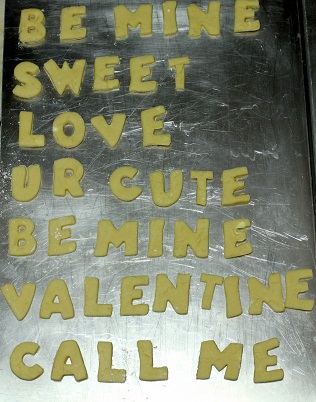 BE MINE
SWEET
LOVE
UR CUTE
BE MINE
VALENTINE
CALL ME